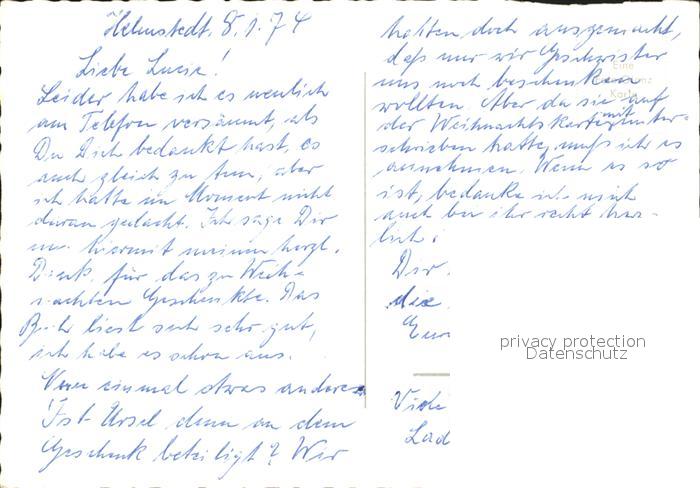 Helmstedt, 8.1.74
Liebe Lucie!
Leider habe ich es neulich
am Telefon versäumt, als
Du Dich bedankt hast, es
auch gleich zu tun, aber
ich hatte im Moment nicht
daran gedacht. Ich sage Dir
nun hiermit meinen herzl.
Dank für das zu Weih-
nachten Geschenkte. Das
Buch liest sich sehr gut,
ich habe es schon aus.
Nun einmal etwas anderes
Ist Ursel denn an dem
Geschenk beteiligt? Wir
hatten doch ausgemacht,
daß nur wir Geschwister
uns noch beschenken
wollten. Aber da sie auf
der Weihnachtskarte mit unter-
schrieben hatte, muß ich es
annehmen. Wenn es so
ist, bedanke ich mich
auch bei ihr recht herz-
lich!
Dir
die
privacy protection
Datenschutz